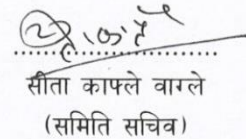 सीता काफ्ले वाग्ले
(समिति सचिव)